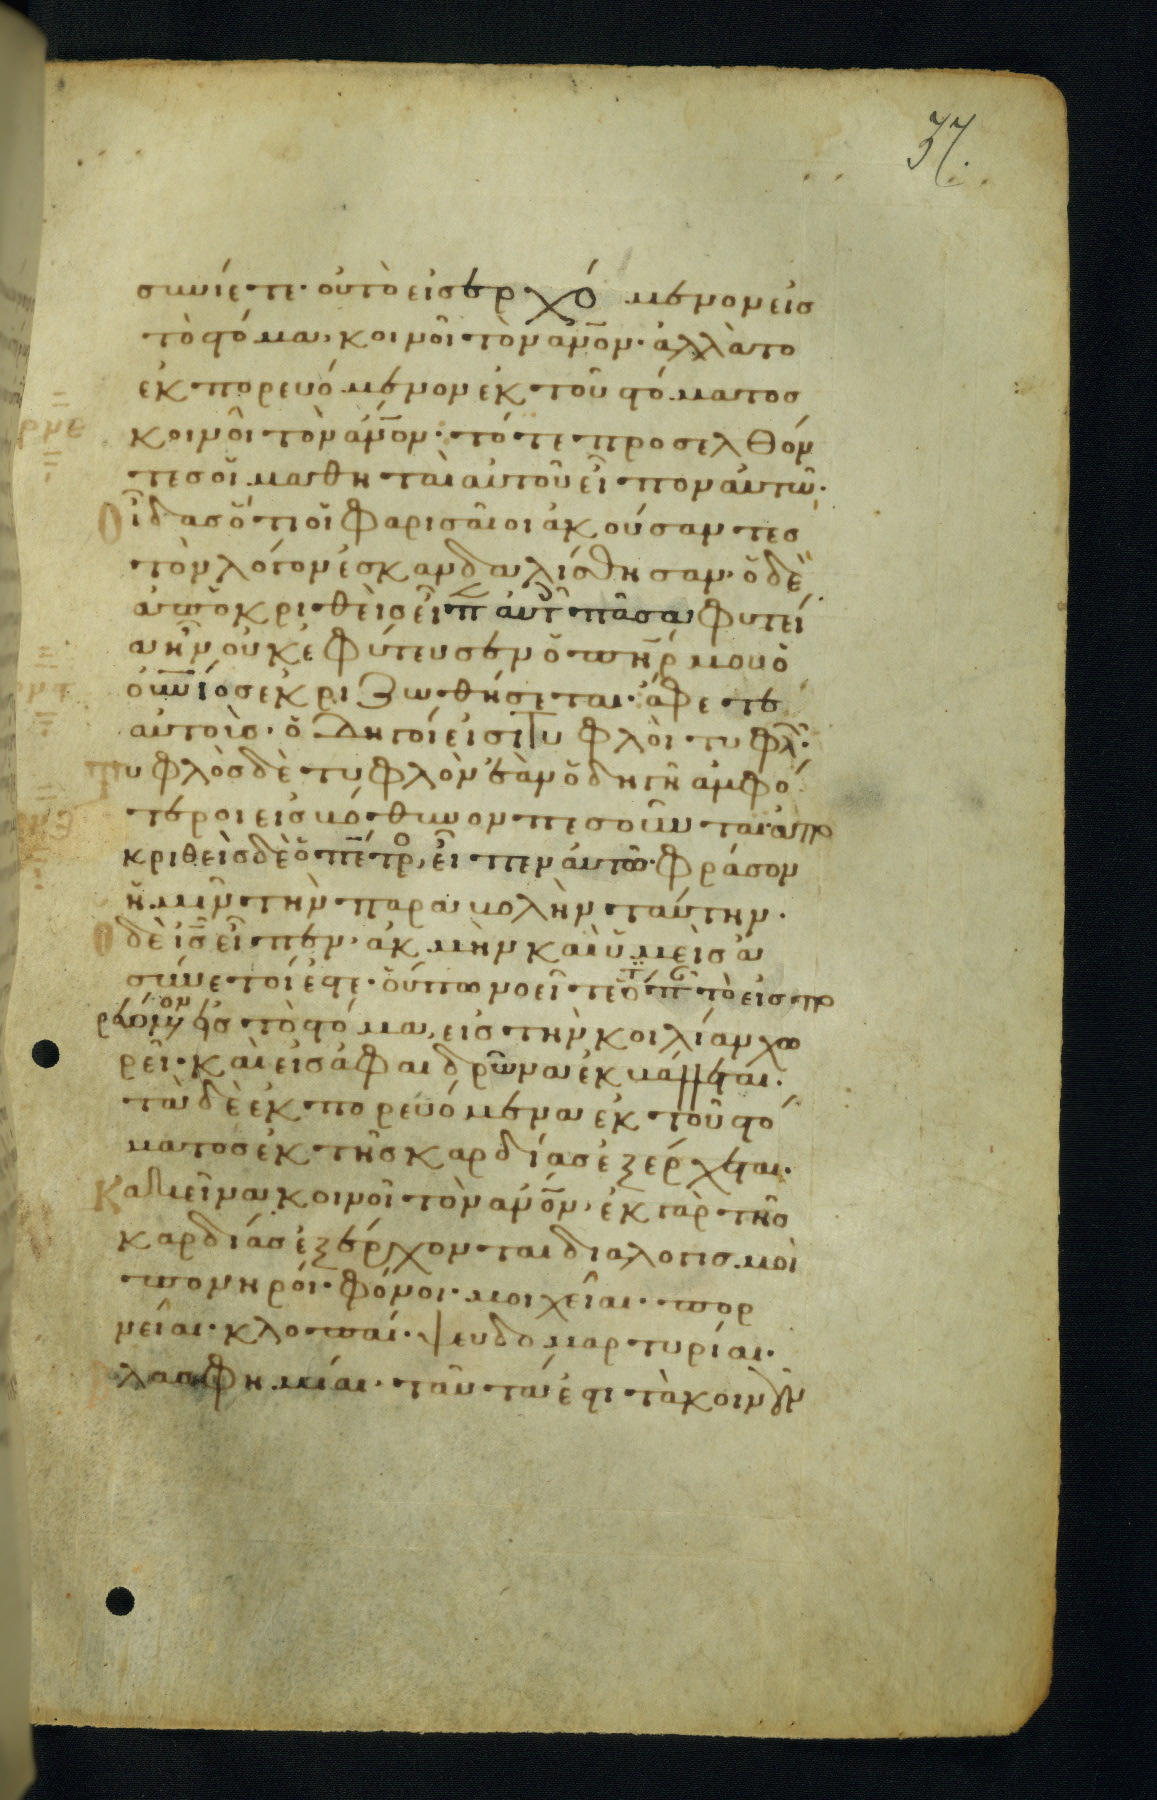 37.
συνίετε· οὐ τὸ εἰσερχόμενον εἰς
τὸ στόμα, κοινοῖ τὸν ἀνον· ἀλλὰ το
ἐκπορευόμενον ἐκ τοῦ στόματος
κοινοῖ τὸν ἀνον· τότε προσελθόν
τες οἱ μαθηταὶ αὐτοῦ εἶπον αὐτῶ·
Οἶδας ὅτι οἱ φαρισαῖοι ἀκούσαντες
τὸν λόγον ἐσκανδαλίσθησαν· ὁ δὲ
ἀποκριθεὶς εἶπ αὐτ πᾶσα φυτεί
α ἣν οὐκ ἐφύτευσεν ὁ πηρ μου ὁ
οὐνιος ἐκριζωθήσεται· ἄφετε
αὐτοὺς· ὁδηγοί εἰσι τυφλοὶ τυφλ·
Τυφλὸς δὲ τυφλὸν ἐὰν ὁδηγῆ ἀμφό
τεροι εἰς βόθυνον πεσοῦνται· ἀπο
κριθεὶς δὲ ὁ πέτρο, εἶπεν αὐτῶ· φράσον
ἡμῖν τὴν παραβολὴν ταύτην·
Ο δὲ ις εἶπεν· ἀκμὴν καὶ ὑμεῖς ἀ
σύνετοί ἐστε· οὔπω νοεῖτε ὅτι π τὸ εἰσπο
ρευόμενον εἰς τὸ στόμα, εἰς τὴν κοιλίαν χω
ρεῖ· καὶ εἰς ἀφαιδρῶνα ἐκβάλλεται·
τὰ δὲ ἐκπορευόμενα ἐκ τοῦ στό
ματος ἐκ τῆς καρδίας ἐξέρχεται·
Κἀκεῖνα κοινοῖ τὸν ἀνον, ἐκ γὰρ τῆς
καρδίας ἐξέρχονται διαλογισμοὶ
πονηροί· φόνοι· μοιχεῖαι· πορ
νεῖαι· κλοπαί· ψευδομαρτυρίαι·
λασφημίαι· ταῦτά ἐστι τὰ κοινοῦν